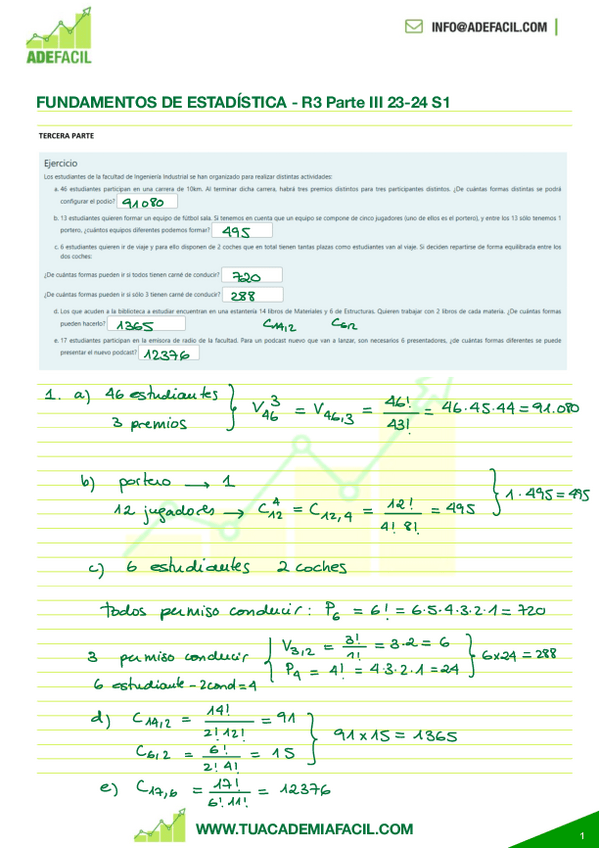 INFO@ADEFACIL.COM
ADEFACIL
FUNDAMENTOS DE ESTADÍSTICA - R3 Parte III 23-24 S1
TERCERA PARTE
Ejercicio
Los estudiantes de la facultad de Ingeniería Industrial se han organizado para realizar distintas actividades:
a. 46 estudiantes participan en una carrera de 10km. Al terminar dicha carrera, habrá tres premios distintos para tres participantes distintos. ¿De cuántas formas distintas se podrá
configurar el podio? 91080
b. 13 estudiantes quieren formar un equipo de fútbol sala. Si tenemos en cuenta que un equipo se compone de cinco jugadores (uno de ellos es el portero), y entre los 13 sólo tenemos 1
portero, ¿cuántos equipos diferentes podemos formar? 495
c. 6 estudiantes quieren ir de viaje y para ello disponen de 2 coches que en total tienen tantas plazas como estudiantes van al viaje. Si deciden repartirse de forma equilibrada entre los
dos coches:
¿De cuántas formas pueden ir si todos tienen carné de conducir? 720
¿De cuántas formas pueden ir si sólo 3 tienen carné de conducir? 288
d. Los que acuden a la biblioteca a estudiar encuentran en una estantería 14 libros de Materiales y 6 de Estructuras. Quieren trabajar con 2 libros de cada materia. ¿De cuántas formas
pueden hacerlo? 1365 C14,2 C6,2
e. 17 estudiantes participan en la emisora de radio de la facultad. Para un podcast nuevo que van a lanzar, son necesarios 6 presentadores, ¿de cuántas formas diferentes se puede
presentar el nuevo podcast? 12376
1. a) 46 estudiantes
3 premios } V₄₆³ = V₄₆,₃ = 46!/43! = 46·45·44 = 91.080
b) portero → 1
12 jugadores → C₁₂⁴ = C₁₂,₄ = 12!/4! 8! = 495 } 1·495=495
c) 6 estudiantes 2 coches
todos permiso conducir: P₆ = 6! = 6·5·4·3·2·1 = 720
3 permiso conducir { V₃,₂ = 3!/1! = 3·2 = 6
6 estudiante - 2cond = 4 P₄ = 4! = 4·3·2·1 = 24 } 6x24 = 288
d) C₁₄,₂ = 14!/2! 12! = 91
C₆,₂ = 6!/2! 4! = 15 } 91 x 15 = 1365
e) C₁₇,₆ = 17!/6! 11! = 12376
WWW.TUACADEMIAFACIL.COM
1